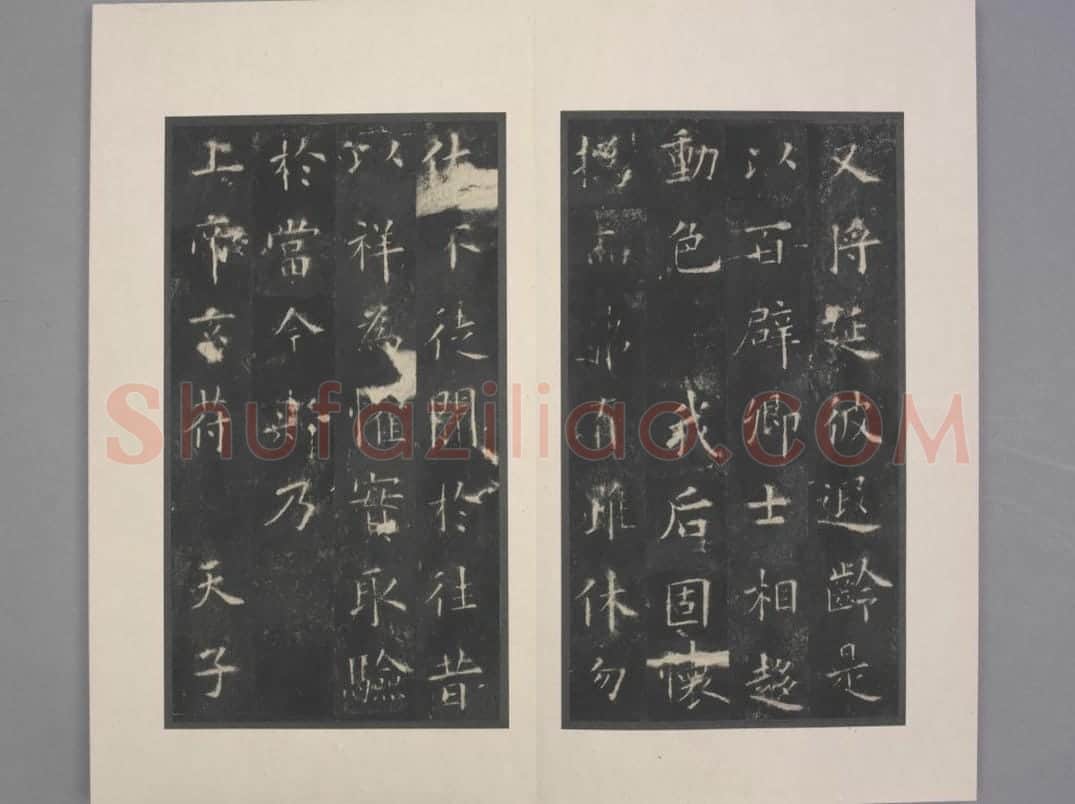 又將延彼遐齡是
以百辟卿士相趍
動色 我后固懷
撝弗有雖休勿
休不徒聞於往昔
以祥為懼實取驗
於當今斯乃
上帝玄符 天子
Shufaziliao.COM